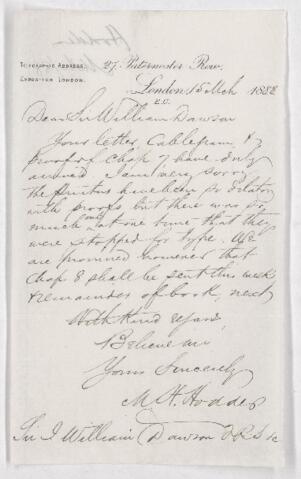 Hodder
27, Paternoster Row,
TELEGRAPHIC ADDRESS:
EXPOSITOR LONDON.
London 15 Mch 1888
E.C.
Dear Sir William Dawson
Your letter, Cablegram, &
proof of Chap 7 have duly
arrived I am very sorry
the printers have been so dilatory
with proofs but there was so
much at one time that they
were stopped for type. We
are promised however that
Chap 8 shall be sent this week
& remainder of book, next
With Kind regards,
Believe me
Yours Sincerely
M H. Hodder
Sir J William Dawson F.R.S &c